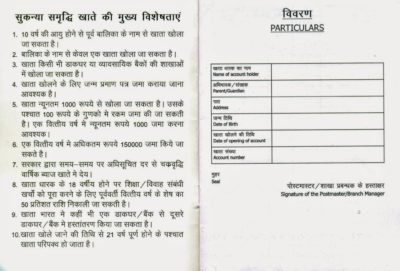 सुकन्या समृद्धि खाते की मुख्य विशेषताएं
1. 10 वर्ष की आयु होने से पूर्व बालिका के नाम से खाता खोला
जा सकता है।
2. बालिका के नाम से केवल एक खाता खोला जा सकता है।
3. खाता किसी भी डाकघर या व्यावसायिक बैंकों की शाखाओं
में खोला जा सकता है।
4. खाता खोलने के लिए जन्म प्रमाण पत्र जमा कराया जाना
आवश्यक है।
5. खाता न्यूनतम 1000 रूपये से खोला जा सकता है। उसके
पश्चात 100 रूपये के गुणकों मे रकम जमा की जा सकती
है एक वित्तीय वर्ष मे न्यूनतम रूपये 1000 जमा करना
आवश्यक।
6. एक वित्तीय वर्ष मे अधिकतम रूपये 150000 जमा किये जा
सकते है।
7. सरकार द्वारा समय-समय पर अधिसूचित दर से चक्रवृद्धि
वार्षिक ब्याज खाते मे देय।
8. खाता धारक के 18 वर्षीय होने पर शिक्षा/विवाह संबंधी
खर्चो को पूरा करने के लिए पूर्ववर्ती वित्तीय वर्ष के शेष का
50 प्रतिशत राशि निकाली जा सकती है।
9. खाता भारत मे कहीं भी एक डाकघर/बैंक से दूसरे
डाकघर/बैंक मे हस्तांतरण किया जा सकता है।
10. खाता खोले जाने की तिथि से 21 वर्ष पूर्ण होने के पश्चात
खाता परिपक्व हो जाता है।
विवरण
PARTICULARS
खाता धारक का नाम
Name of account holder
अभिभावक/संरक्षक
Parent/Guardian
पता
Address
जन्म तिथि
Date of Birth
खाता खोलने की तिथि
Date of opening of account
खाता संख्या
Account number
मुहर
Seal
पोस्टमास्टर/शाखा प्रबन्धक के हस्ताक्षर
Signature of the Postmaster/Branch Manager